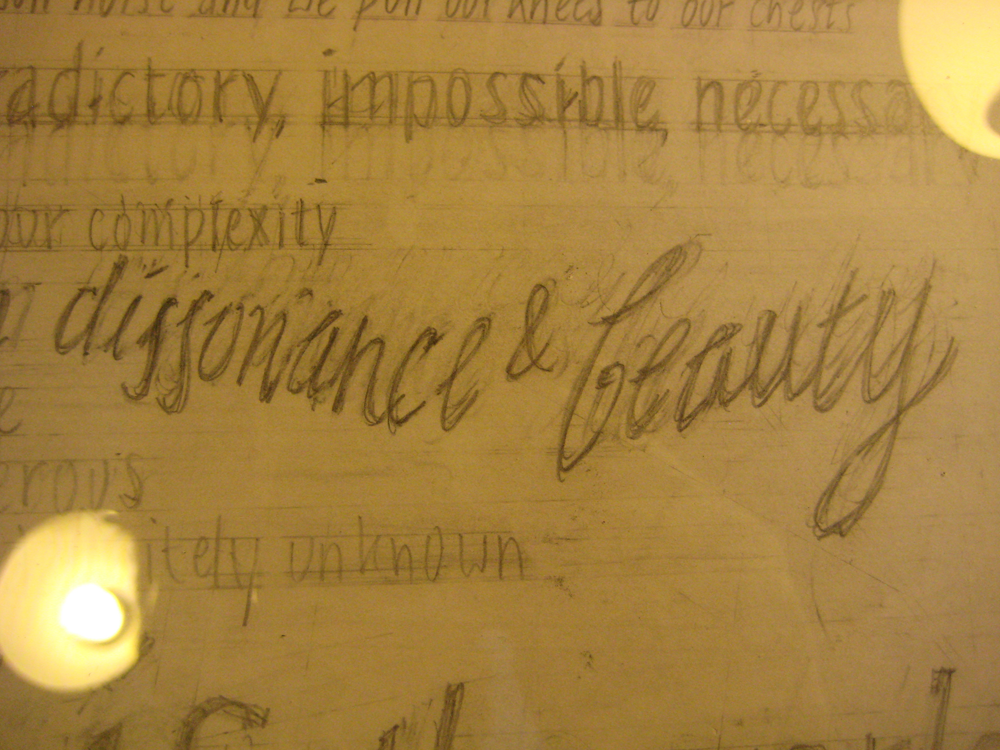 noise and we pull our knees to our chests
adictory, impossible, necessa
our complexity
dissonance & beauty
erous
itely unknown